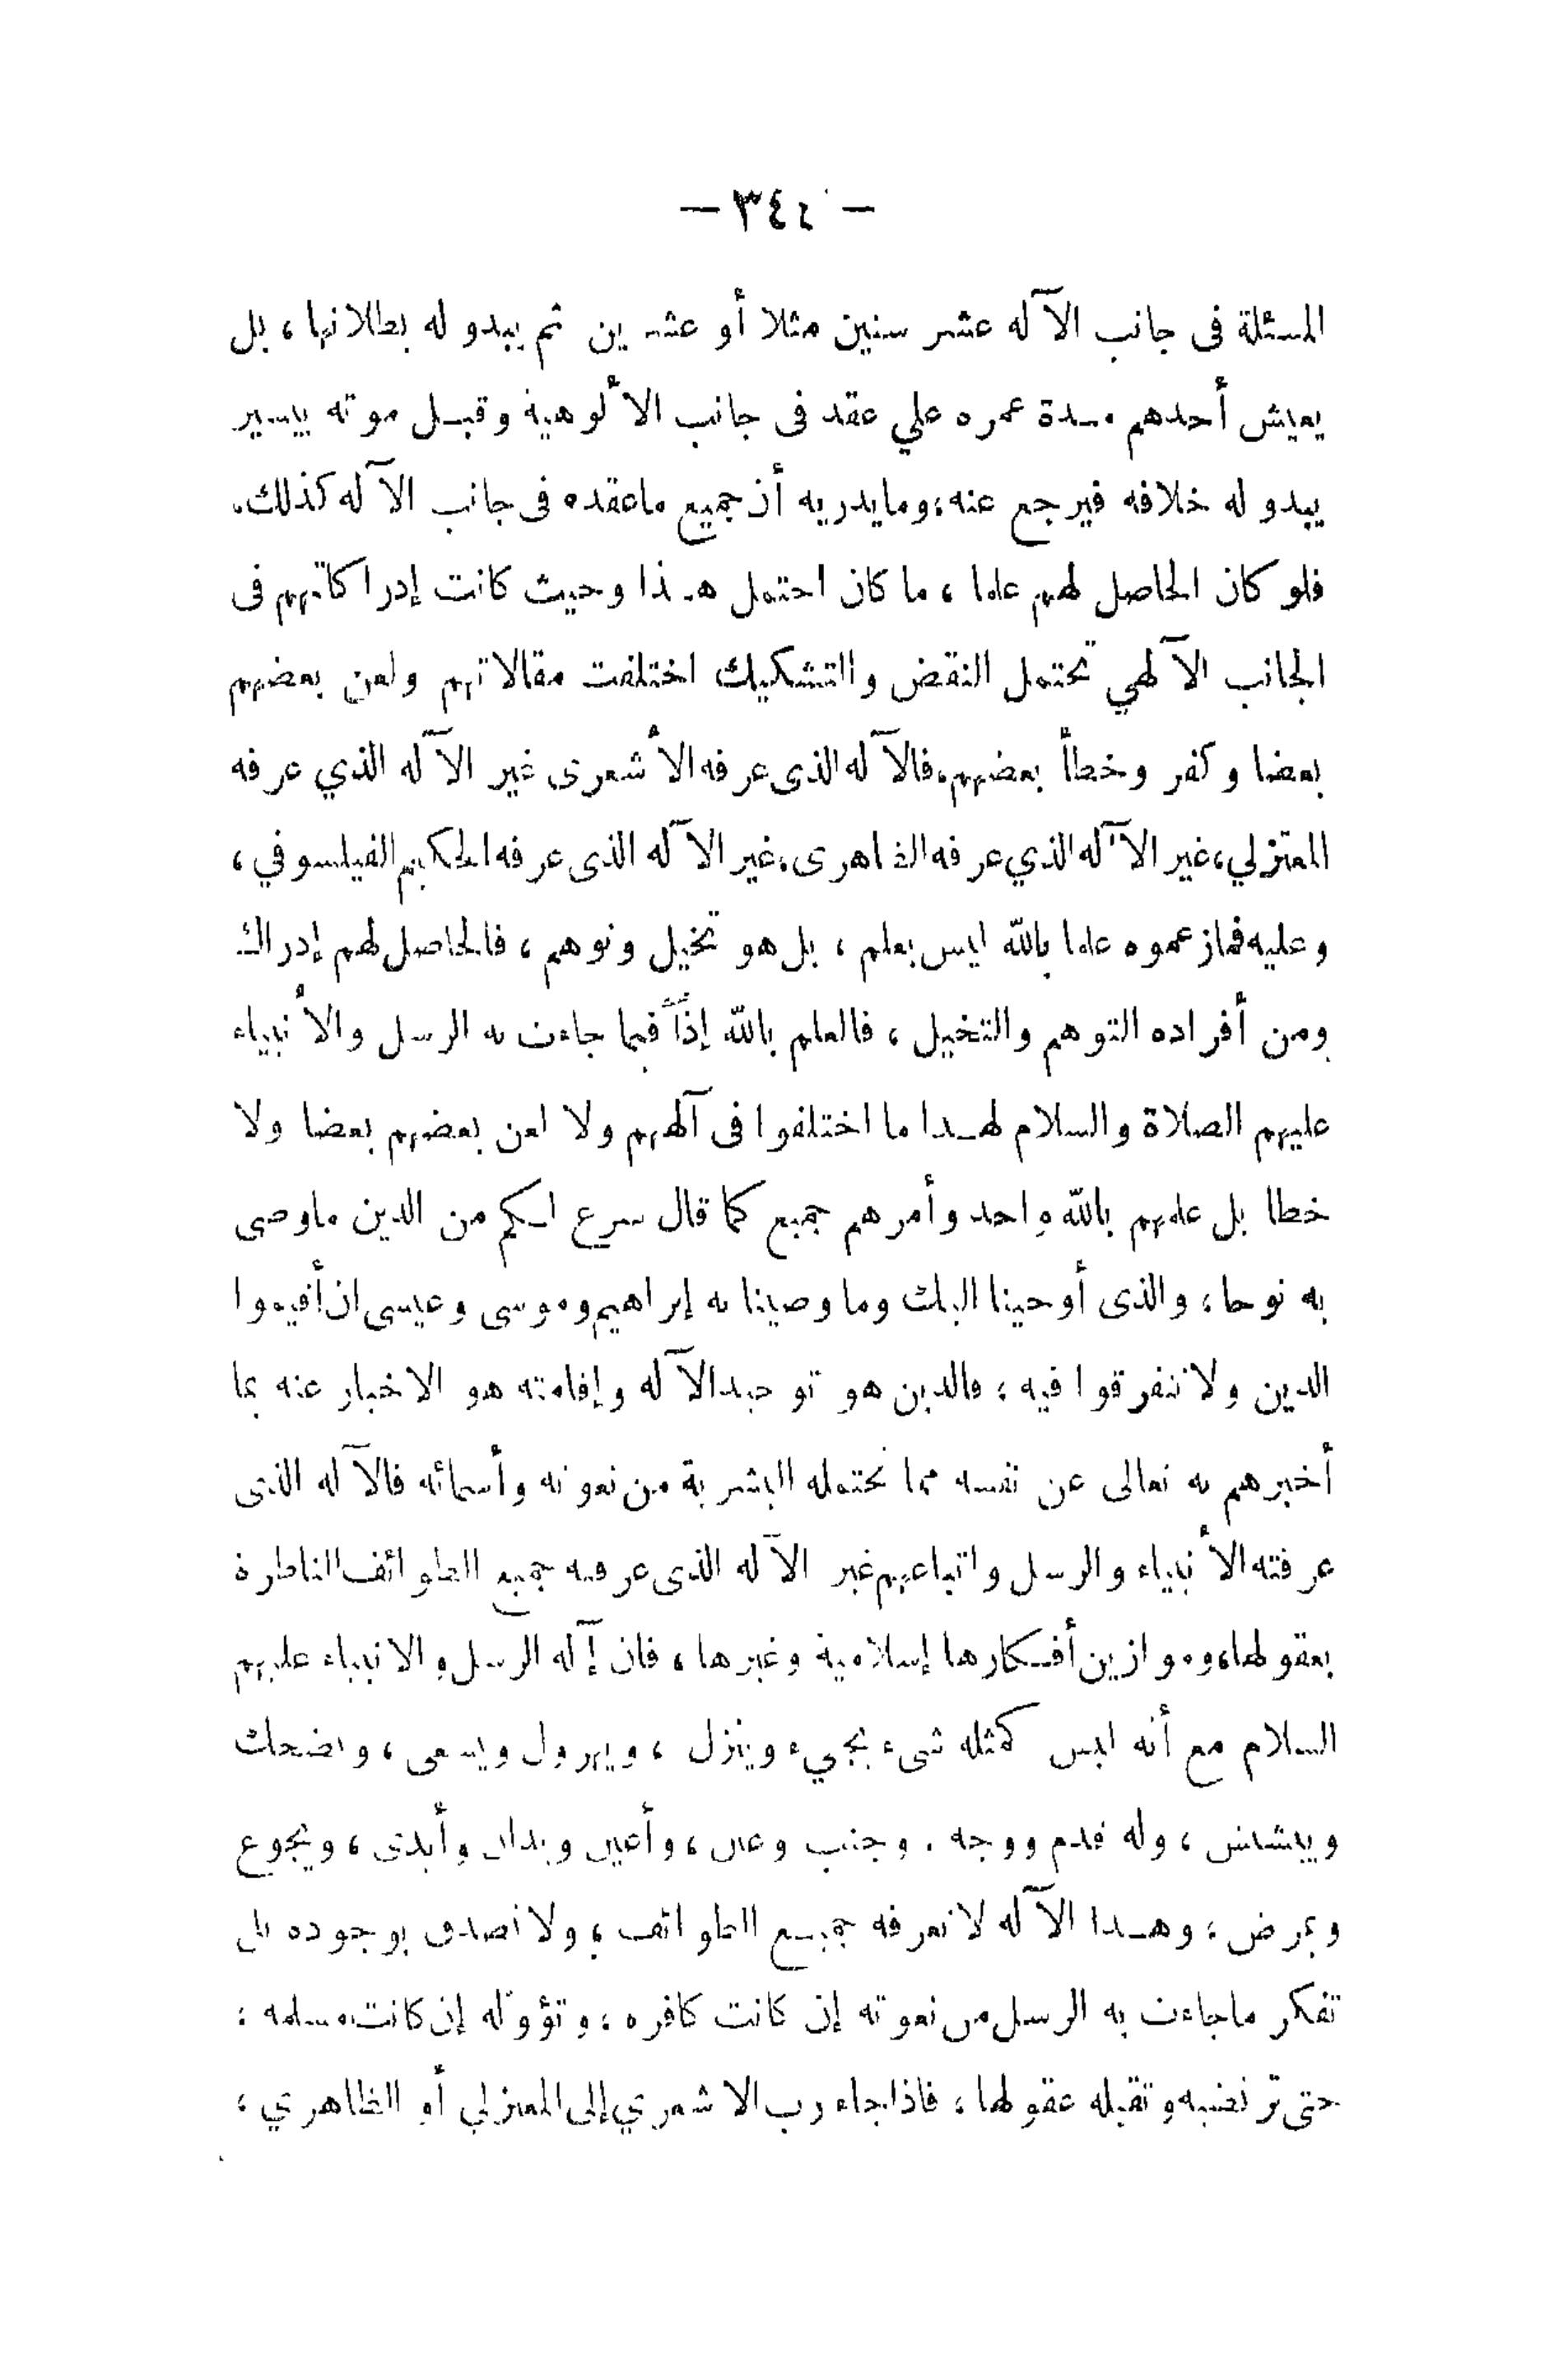 — ٣٤٤ —
المسئلة فى جانب الآله عشر سنين مثلا أو عشرين ثم يبدو له بطلانها ، بل
يعيش أحدهم مدة عمره علي عقد فى جانب الألوهية وقبل موته بيسير
يبدو له خلافه فيرجع عنه ، وما يدريه أن جميع ماعقده فى جانب الآله كذلك .
فلو كان الحاصل لهم علما ، ما كان احتمل هذا وحيث كانت إدراكاتهم فى
الجانب الآلهي تحتمل النقض والتشكيك اختلفت مقالاتهم ولعن بعضهم
بعضا وكفر وخطأ بعضهم ، فالآله الذى عرفه الأشعرى غير الآله الذي عرفه
المعتزلي ، غير الآله الذي عرفه الظاهرى ، غير الآله الذى عرفه الحكيم الفيلسوفي ،
وعليه فمازعموه علما بالله ليس بعلم ، بل هو تخيل وتوهم ، فالحاصل لهم إدراك
ومن أفراده التوهم والتخيل ، فالعلم بالله إذاً فيما جاءت به الرسل والأنبياء
عليهم الصلاة والسلام لهذا ما اختلفوا فى آلههم ولا لعن بعضهم بعضا ولا
خطا بل علمهم بالله واحد وأمرهم جميع كما قال سرع لكم من الدين ماوصى
به نوحا ، والذى أوحينا اليك وما وصينا به إبراهيم وموسى وعيسى ان أقيموا
الدين ولا تتفرقوا فيه ، فالدين هو توحيد الآله وإقامته هو الاخبار عنه بما
أخبرهم به تعالى عن نفسه مما تحتمله البشرية من نعوته وأسمائه فالآله الذى
عرفته الأنبياء والرسل واتباعهم غير الآله الذى عرفه جميع الطوائف الناظرة
بعقولها ، وموازين أفكارها إسلامية وغيرها ، فان إآله الرسل والانبياء عليهم
السلام مع أنه ليس كمثله شىء يجيء وينزل ، ويهرول ويسعى ، ويضحك
ويبشبش ، وله قدم ووجه . وجنب وعين ، وأعين ويدان وأيدى ، ويجوع
ويمرض ، وهذا الآله لا تعرفه جميع الطوائف ، ولا تصدق بوجوده بل
تفكر ماجاءت به الرسل من نعوته إن كانت كافره ، وتؤوّله إن كانت مسلمه ،
حتى ترتضيه وتقبله عقولها ، فاذا جاء رب الاشعري إلى المعتزلي أو الظاهري ،